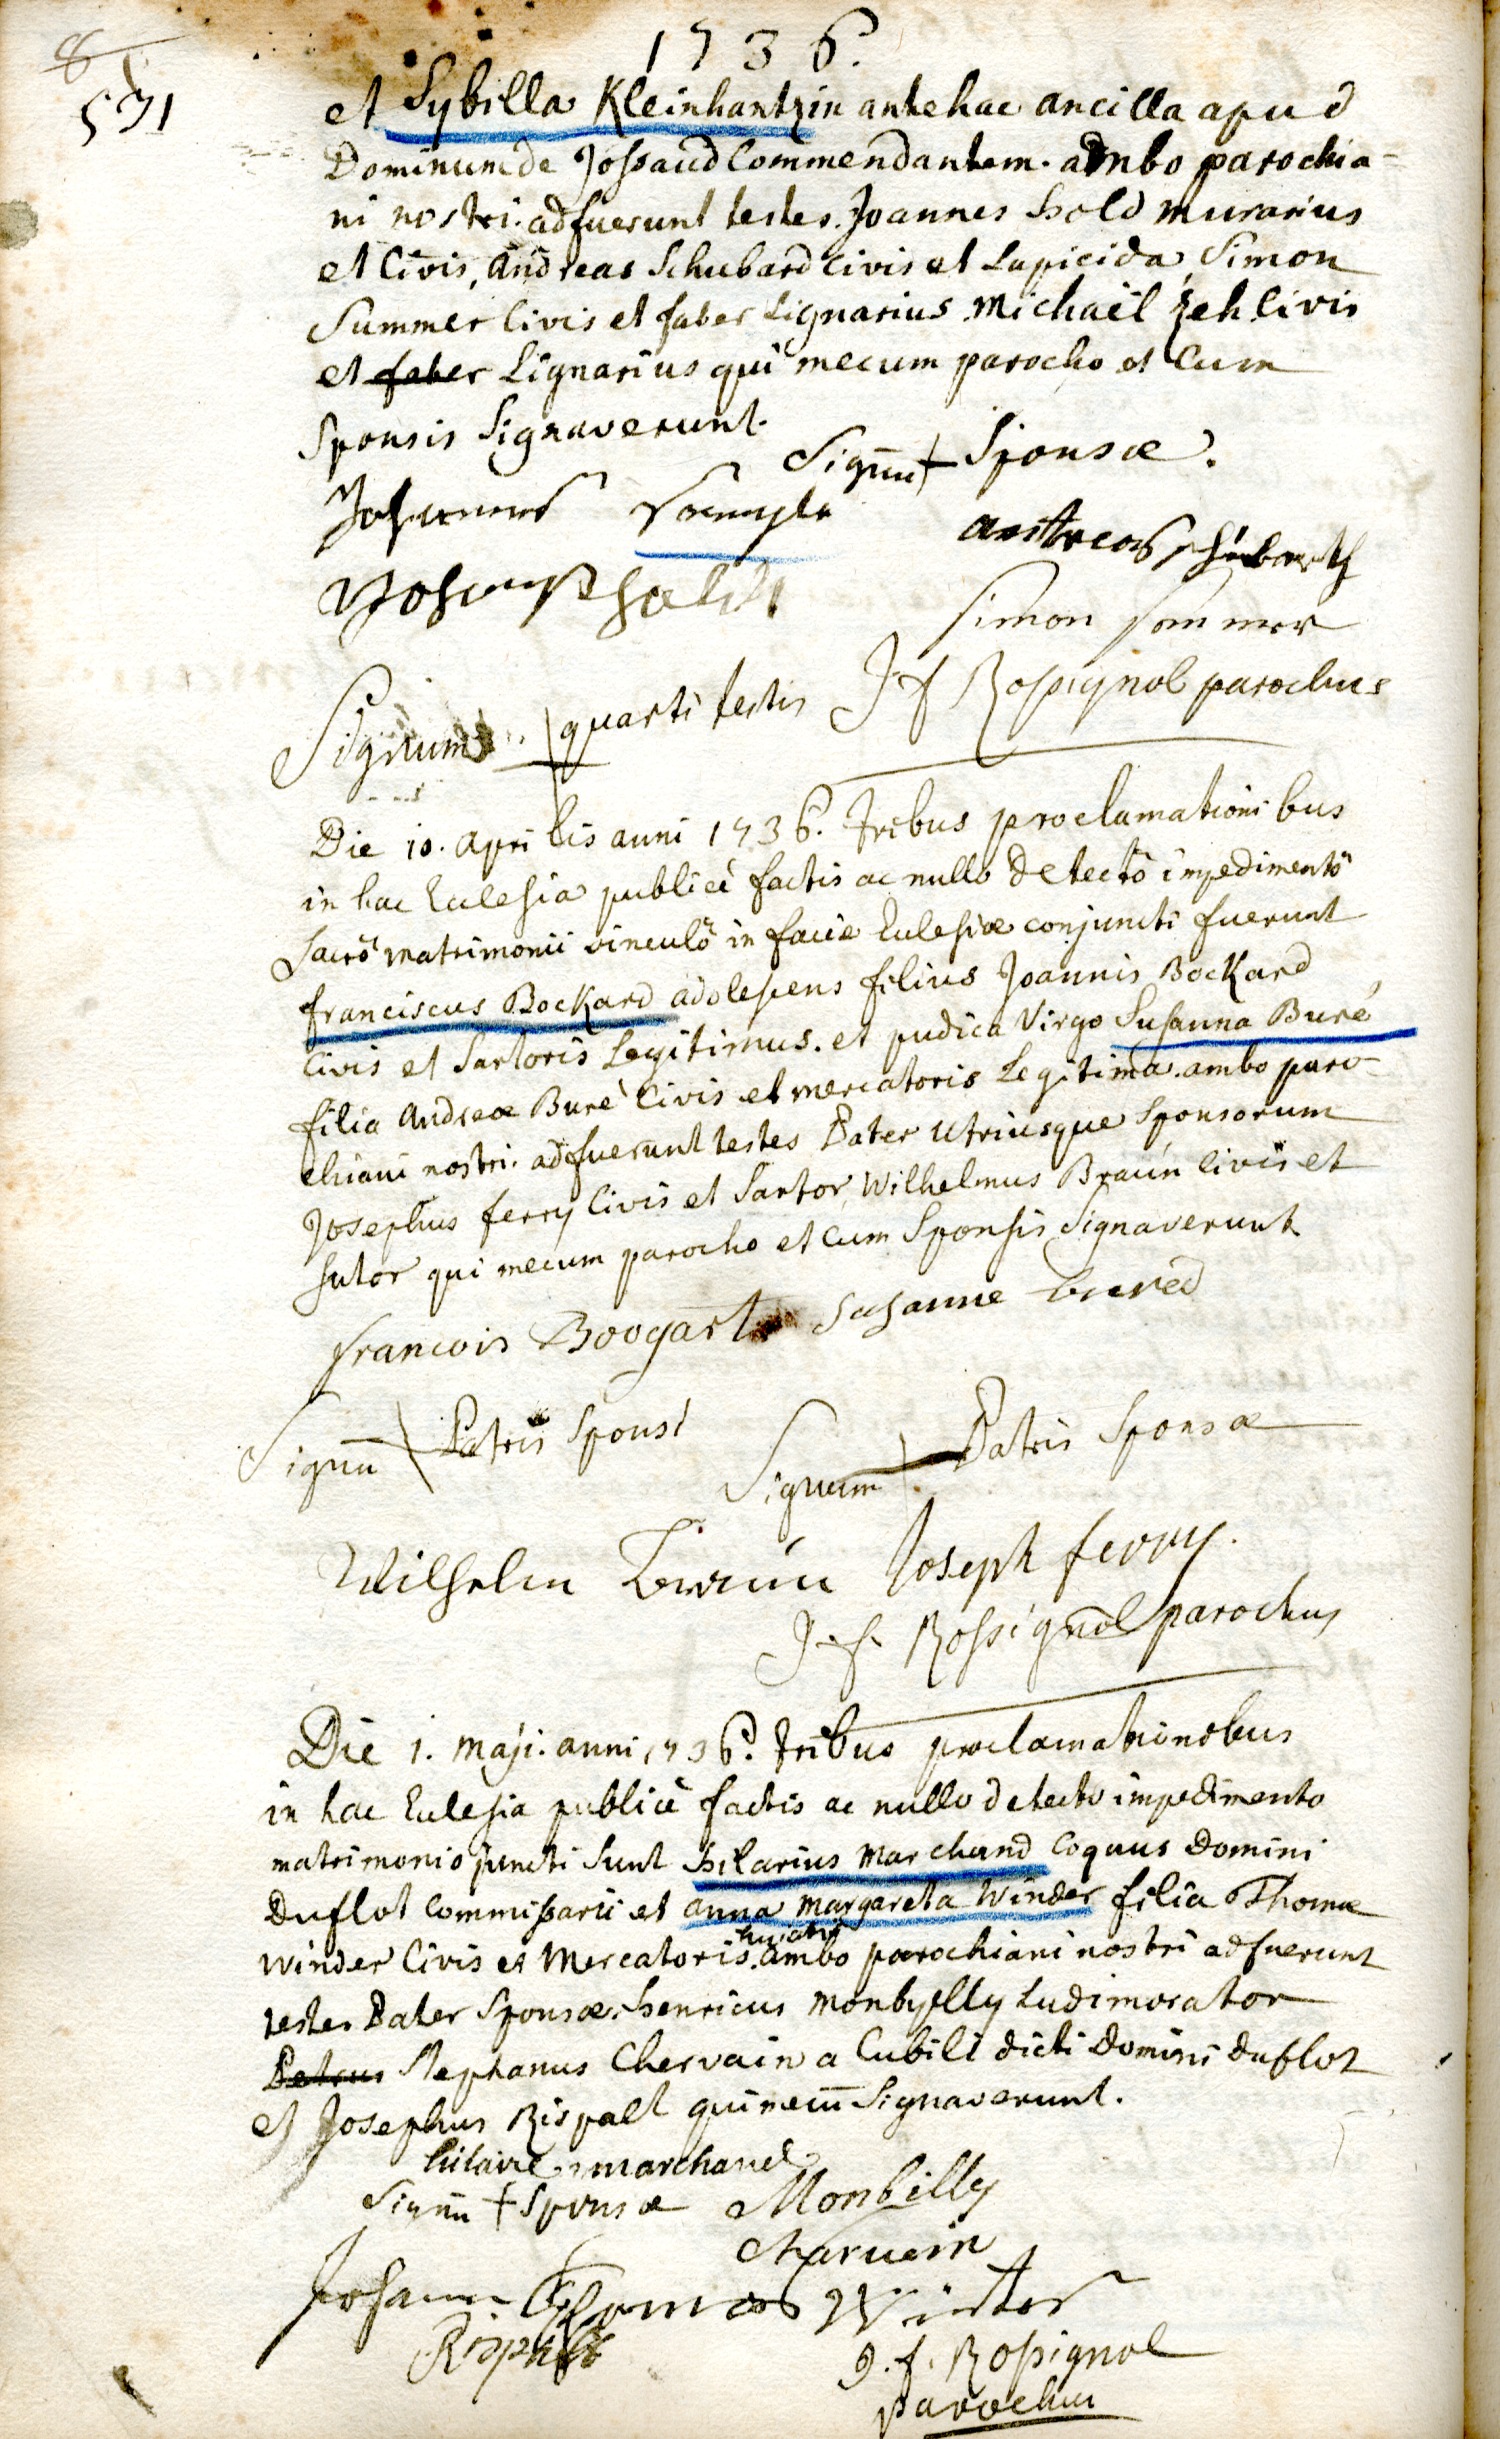 1736.
8
571
et Sybilla Kleinhantzin antehac ancilla apud
Dominum de Jossaud Commendantem. ambo parochia-
ni nostri. adfuerunt testes. Joannes Hold murarius
et Civis, Andreas Schubard Civis et Lapicida, Simon
Summer Civis et faber Lignarius Michaël Zeh Civis
et faber Lignarius qui mecum parocho et Cum
Sponsis Signaverunt.
Signū + Sponsæ.
Johannes
Simon Sommer
Signum + quarti testis J f Rossignol parochus
Die 10. aprilis anni 1736. tribus proclamationibus
in hac Eclesia publicè factis ac nullo detectô impedimentô
Sacrô matrimonii vinculô in facie Eclesiæ conjuncti fuerunt
franciscus Bockard adolescens filius Joannis Bockard
Civis et Sartoris Legitimus. et pudica Virgo Susanna Buré
filia Andreæ Buré Civis et mercatoris Legitima. ambo paro-
chiani nostri. adfuerunt testes Pater Utriusque Sponsorum
Josephus ferry Civis et Sartor, Wilhelmus Braun Civis et
Sutor qui mecum parocho et Cum Sponsis Signaverunt
francois Boogart Susanne bured
Signū + Patris Sponsi
Signum + Patris Sponsæ
Wilhelm Braun Joseph ferry.
J. f. Rossignol parochus
Die 1. Maji. anni 1736. tribus proclamationibus
in hac Eclesia publicè factis ac nullo detecto impedimento
matrimonio juncti Sunt Hilarius Marchand Coquus Domini
Duflot Commissarii et anna Margareta Winder filia Thomæ
Winder Civis et Mercatoris. ambo parochiani nostri adfuerunt
testes Pater Sponsæ. Henricus Monbylly Ludimorator
Petrus Stephanus Chervain a Cubili dicti Domini Duflot
et Josephus Rispalt qui mecū Signaverunt.
hilaire marchand
Signū + Sponsæ Monbilly
Charuein
Johann Thomas Winter
Rispalt
J. f. Rossignol
parochus